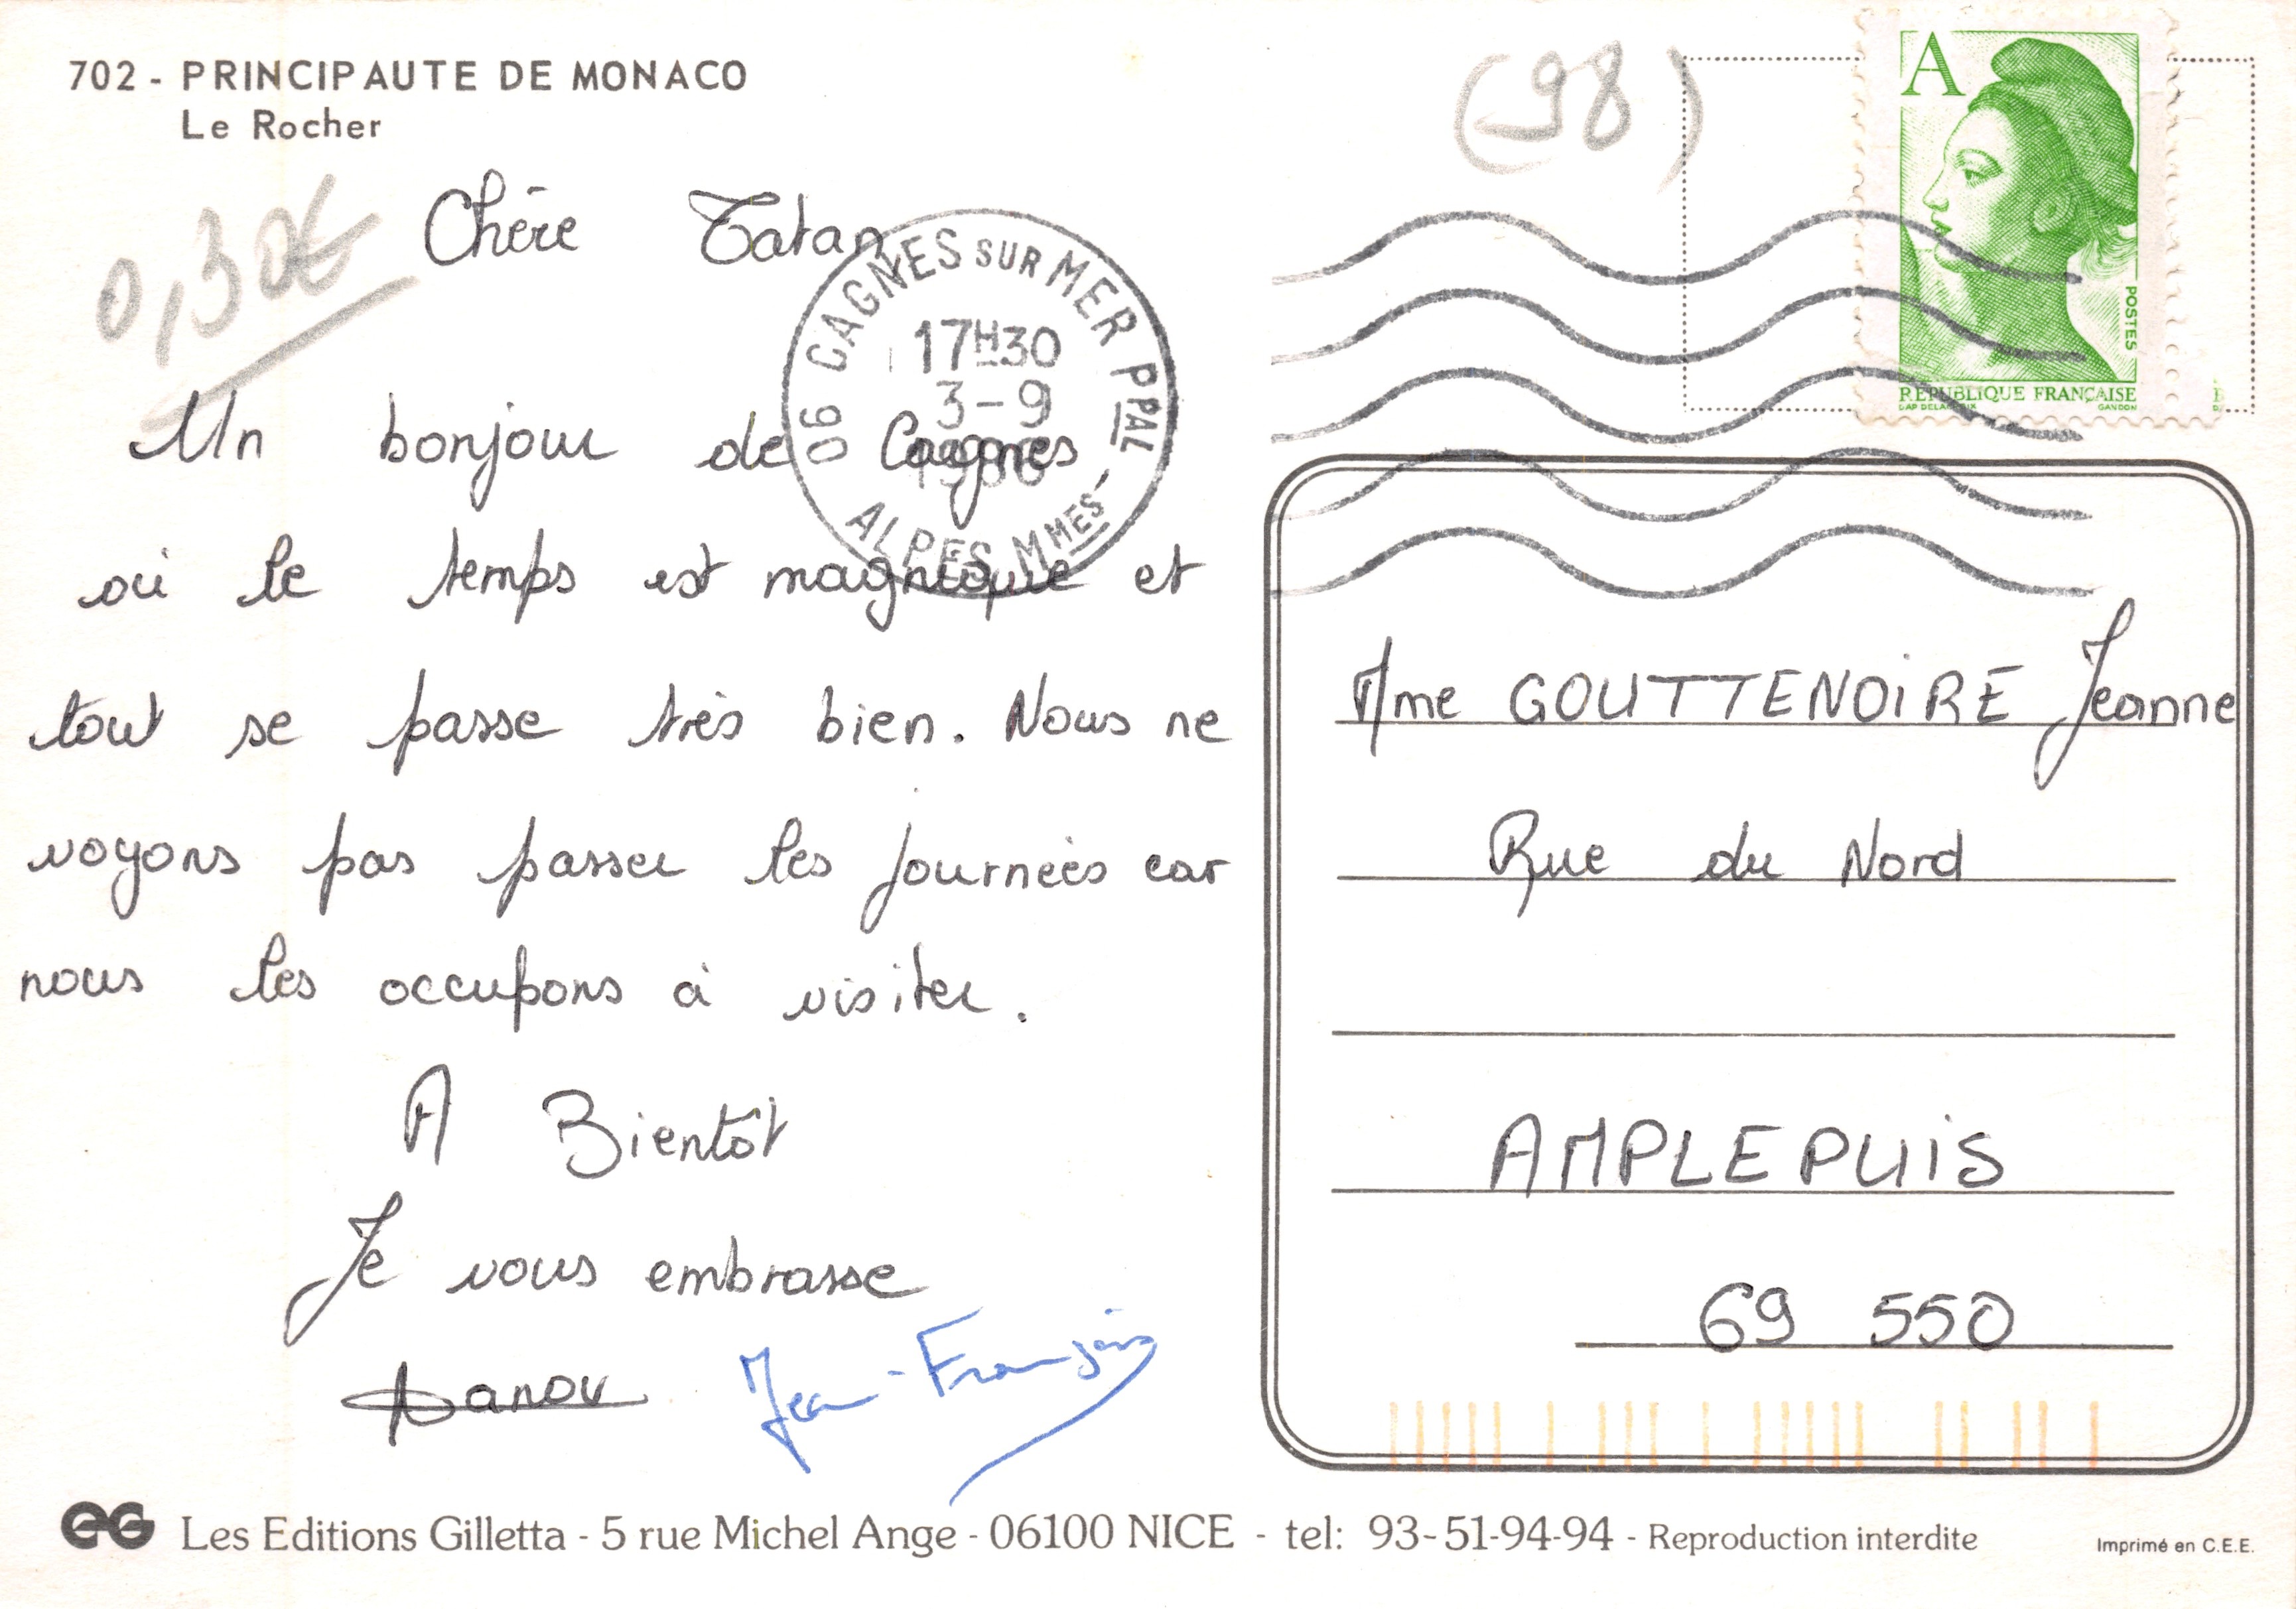 702 - PRINCIPAUTE DE MONACO
Le Rocher
(98)
A
POSTES
REPUBLIQUE FRANÇAISE
GANDON
0,30€
Chère Tatan
06 CAGNES SUR MER PPAL
17H30
3-9
ALPES MMES
Un bonjour de Cagnes
où le temps est magnifique et
tout se passe très bien. Nous ne
voyons pas passer les journées car
nous les occupons à visiter.
A Bientôt
Je vous embrasse
Jean-François
Mme GOUTTENOIRE Jeanne
Rue du Nord
AMPLEPUIS
69 550
EG Les Editions Gilletta - 5 rue Michel Ange - 06100 NICE - tel: 93-51-94-94 - Reproduction interdite
Imprimé en C.E.E.